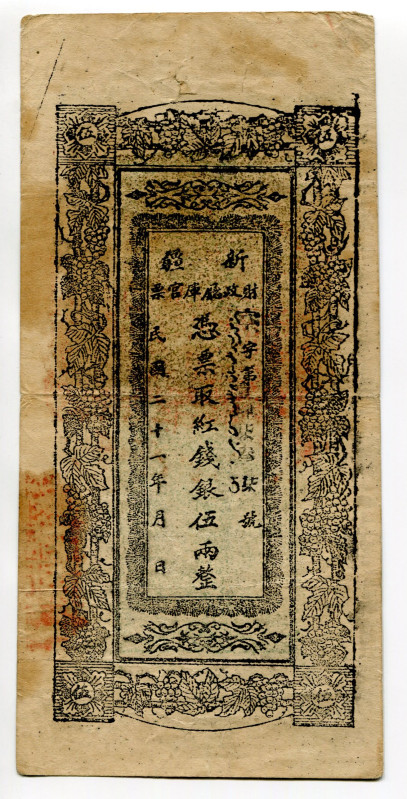 伍 伍
新疆
財政廳庫官票
字第 號
憑票取紅錢銀伍兩整
民國二十一年月日
伍 伍